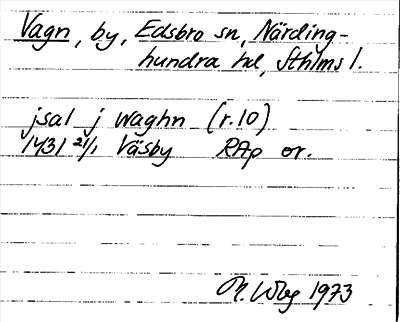 Vagn, by, Edsbro sn, Närding-
hundra hd, Sthlms l.
jsal j waghn (r.10)
1431 21/1 Väsby RAp or.
1973